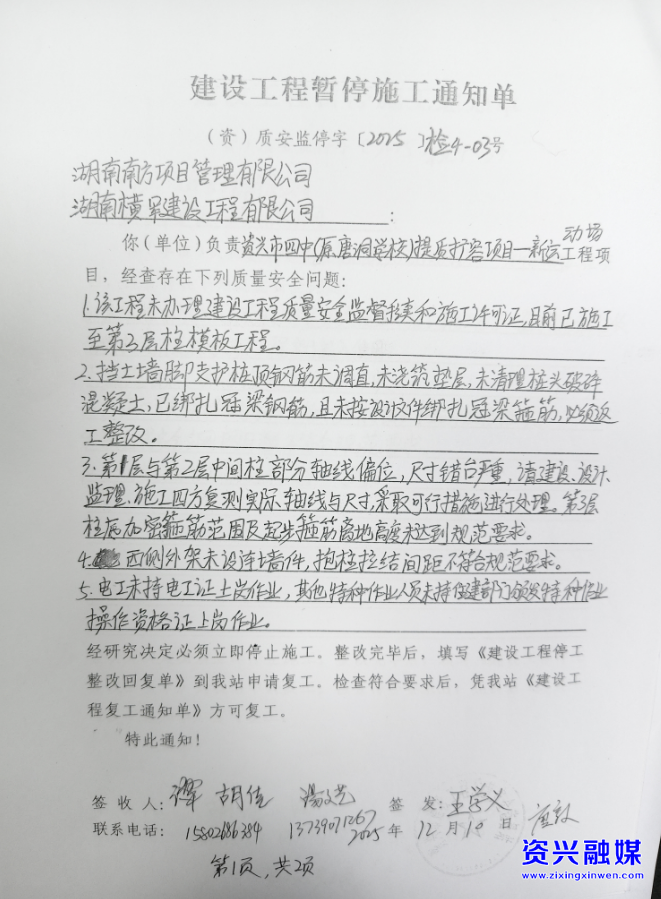 建设工程暂停施工通知单
（资）质安监停字［2025］检4-03号
湖南南方项目管理有限公司
湖南横昇建设工程有限公司：
你(单位)负责资兴市四中(原唐洞学校)提质扩容项目一新运动场工程项
目，经查存在下列质量安全问题：
1.该工程未办理建设工程质量安全监督手续和施工许可证,目前已施工
至第3层柱模板工程。
2.挡土墙脚支护桩顶钢筋未调直,未浇筑垫层,未清理桩头破碎
混凝土,已绑扎冠梁钢筋,且未按设计文件绑扎冠梁箍筋,必须返
工整改。
3.第1层与第2层中间柱部分轴线偏位,尺寸错台严重,请建设、设计、
监理、施工四方复测实际轴线与尺寸,采取可行措施进行处理。第3层
柱底加密箍筋范围及起步箍筋离地高度未达到规范要求。
4.西侧外架未设连墙件,抱柱拉结间距不符合规范要求。
5.电工未持电工证上岗作业,其他特种作业人员未持住建部门颁发特种作业
操作资格证上岗作业。
经研究决定必须立即停止施工。整改完毕后，填写《建设工程停工
整改回复单》到我站申请复工。检查符合要求后，凭我站《建设工
程复工通知单》方可复工。
特此通知！
签收人：胡佳 签 发：王学义
联系电话：15802686384 13739071267 2025年12月10日
第1页,共2页
资兴融媒
www.zixingxinwen.com